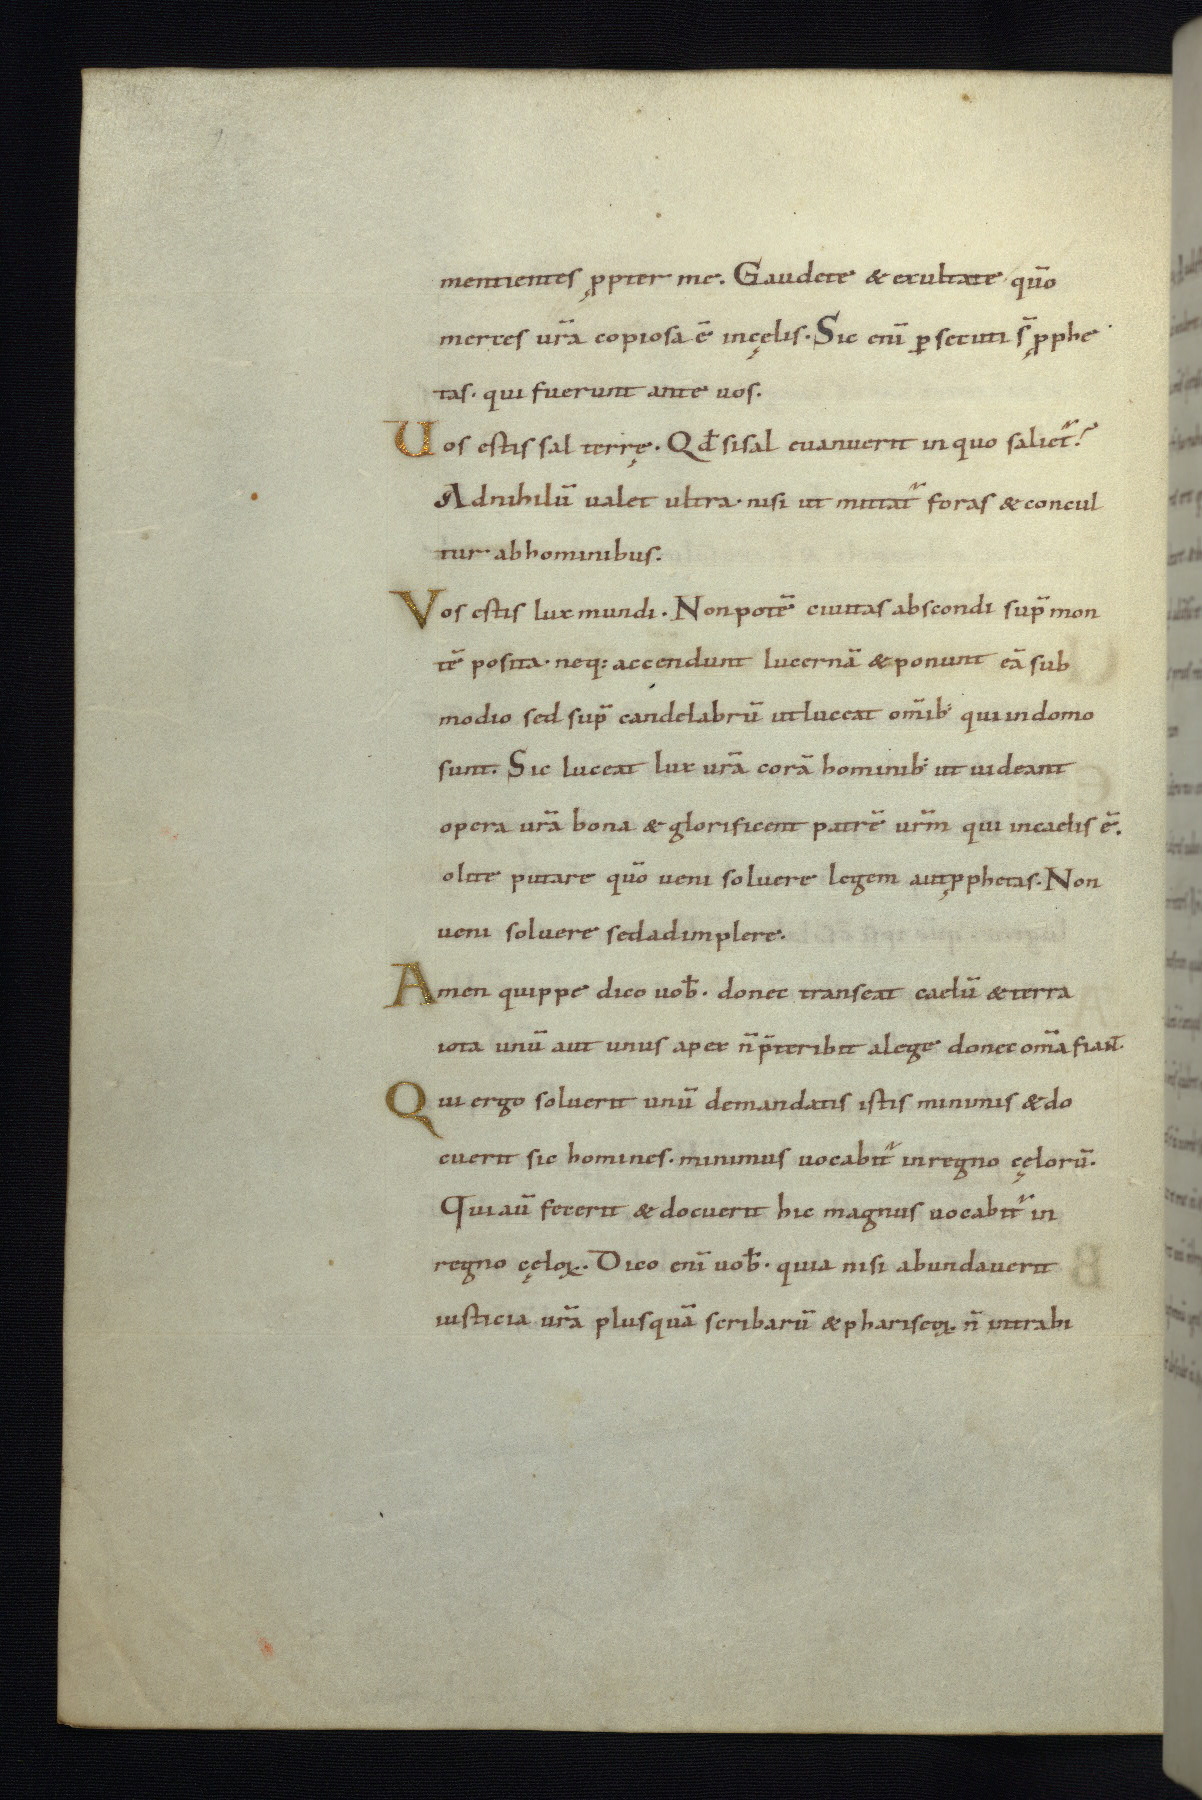 mentientes ꝓpter me. Gaudete & exultate quō
merces ur̄a copiosa ē incęlis. Sic enī ꝑsecuti s̄ ꝓphe
tas. qui fuerunt ante uos.
Uos estis sal terrę. Qđ si sal euanuerit in quo saliet᷑?
Adnihilū ualet ultra. nisi ut mittat᷑ foras & concul
tur ab hominibus.
Vos estis lux mundi. Non potē ciuitas abscondi sup̄ mon
tē posita. neq; accendunt lucernā & ponunt eā sub
modio sed sup̄ candelabrū ut luceat om̄ib; qui in domo
sunt. Sic luceat lux ur̄a corā hominib; ut uideant
opera ur̄a bona & glorificent patrē ur̄m qui in caelis ē.
olite putare quō ueni soluere legem aut ꝓphetas. Non
ueni soluere sed adimplere.
Amen quippe dico uob̄. donec transeat caelū & terra
iota unū aut unus apex n̄ p̄teribit a lege donec om̄a fiant.
Qui ergo soluerit unū de mandatis istis minimis & do
cuerit sic homines. minimus uocabit᷑ in regno cęlorū.
Qui aū fecerit & docuerit hic magnus uocabit᷑ in
regno cęloꝝ. Dico enī uob̄. quia nisi abundauerit
iusticia ur̄a plus quā scribarū & phariseoꝝ n̄ intrabi